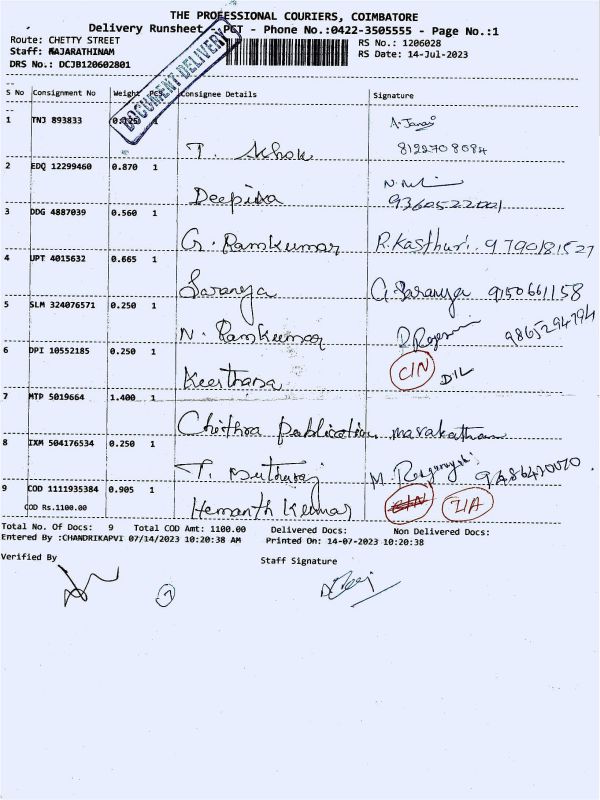 THE PROFESSIONAL COURIERS, COIMBATORE
Delivery Runsheet - PCT - Phone No.:0422-3505555 - Page No.:1
Route: CHETTY STREET
RS No.: 1206028
Staff: MAJARATHINAM
RS Date: 14-Jul-2023
DRS No.: DCJB120602801
DOCUMENT DELIVERY
S No Consignment No Weight PCS Consignee Details Signature
1 TNJ 893833 0.125 1
T. Ashok 8122708084
2 EDQ 12299460 0.870 1
Deepika 9360522001
3 DDG 4887039 0.560 1
G. Ramkumar R.Kasthuri. 9790181527
4 UPT 4015632 0.665 1
Saranya G.Saranya 9150661158
5 SLM 324076571 0.250 1
N. Ramkumar 9865294794
6 DPI 10552185 0.250 1
Keerthana CIN DIL
7 MTP 5019664 1.400 1
Chithra publication marakatham
8 IXM 504176534 0.250 1
T. Muthuraj M.
9 COD 1111935384 0.905 1
COD Rs.1100.00
Hemanth Kumar CIN IIA
Total No. Of Docs: 9 Total COD Amt: 1100.00 Delivered Docs: Non Delivered Docs:
Entered By :CHANDRIKAPVI 07/14/2023 10:20:38 AM Printed On: 14-07-2023 10:20:38
Verified By Staff Signature
7